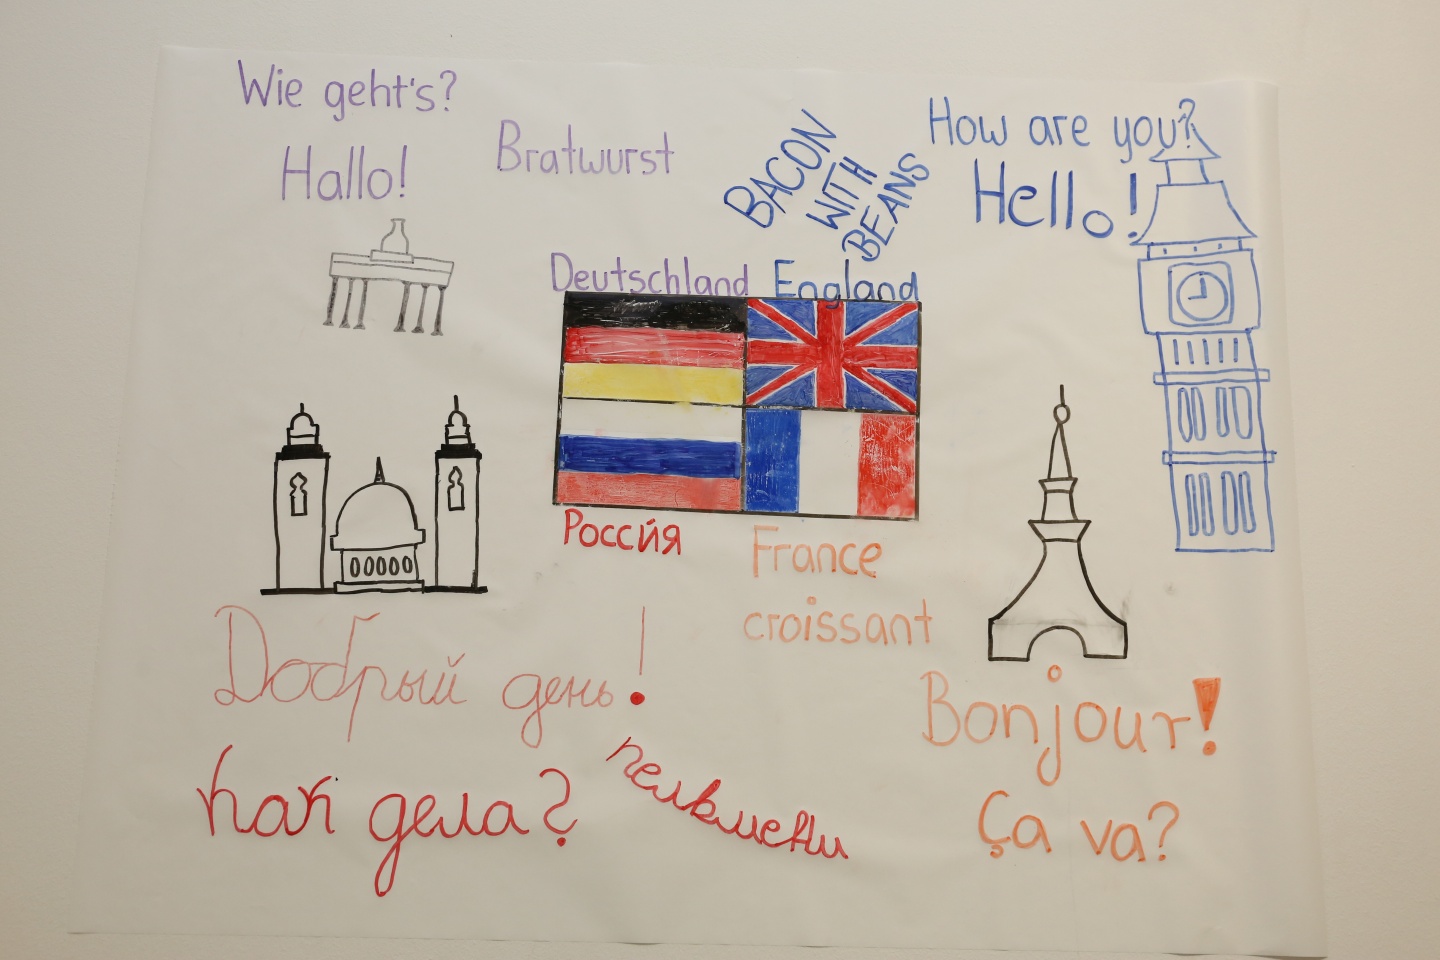 Wie geht's?
Hallo!
Bratwurst
BACON
WITH
BEANS
How are you?
Hello!
Deutschland
England
Россия
France
croissant
Добрый день!
как дела?
пелкмени
Bonjour!
Ça va?